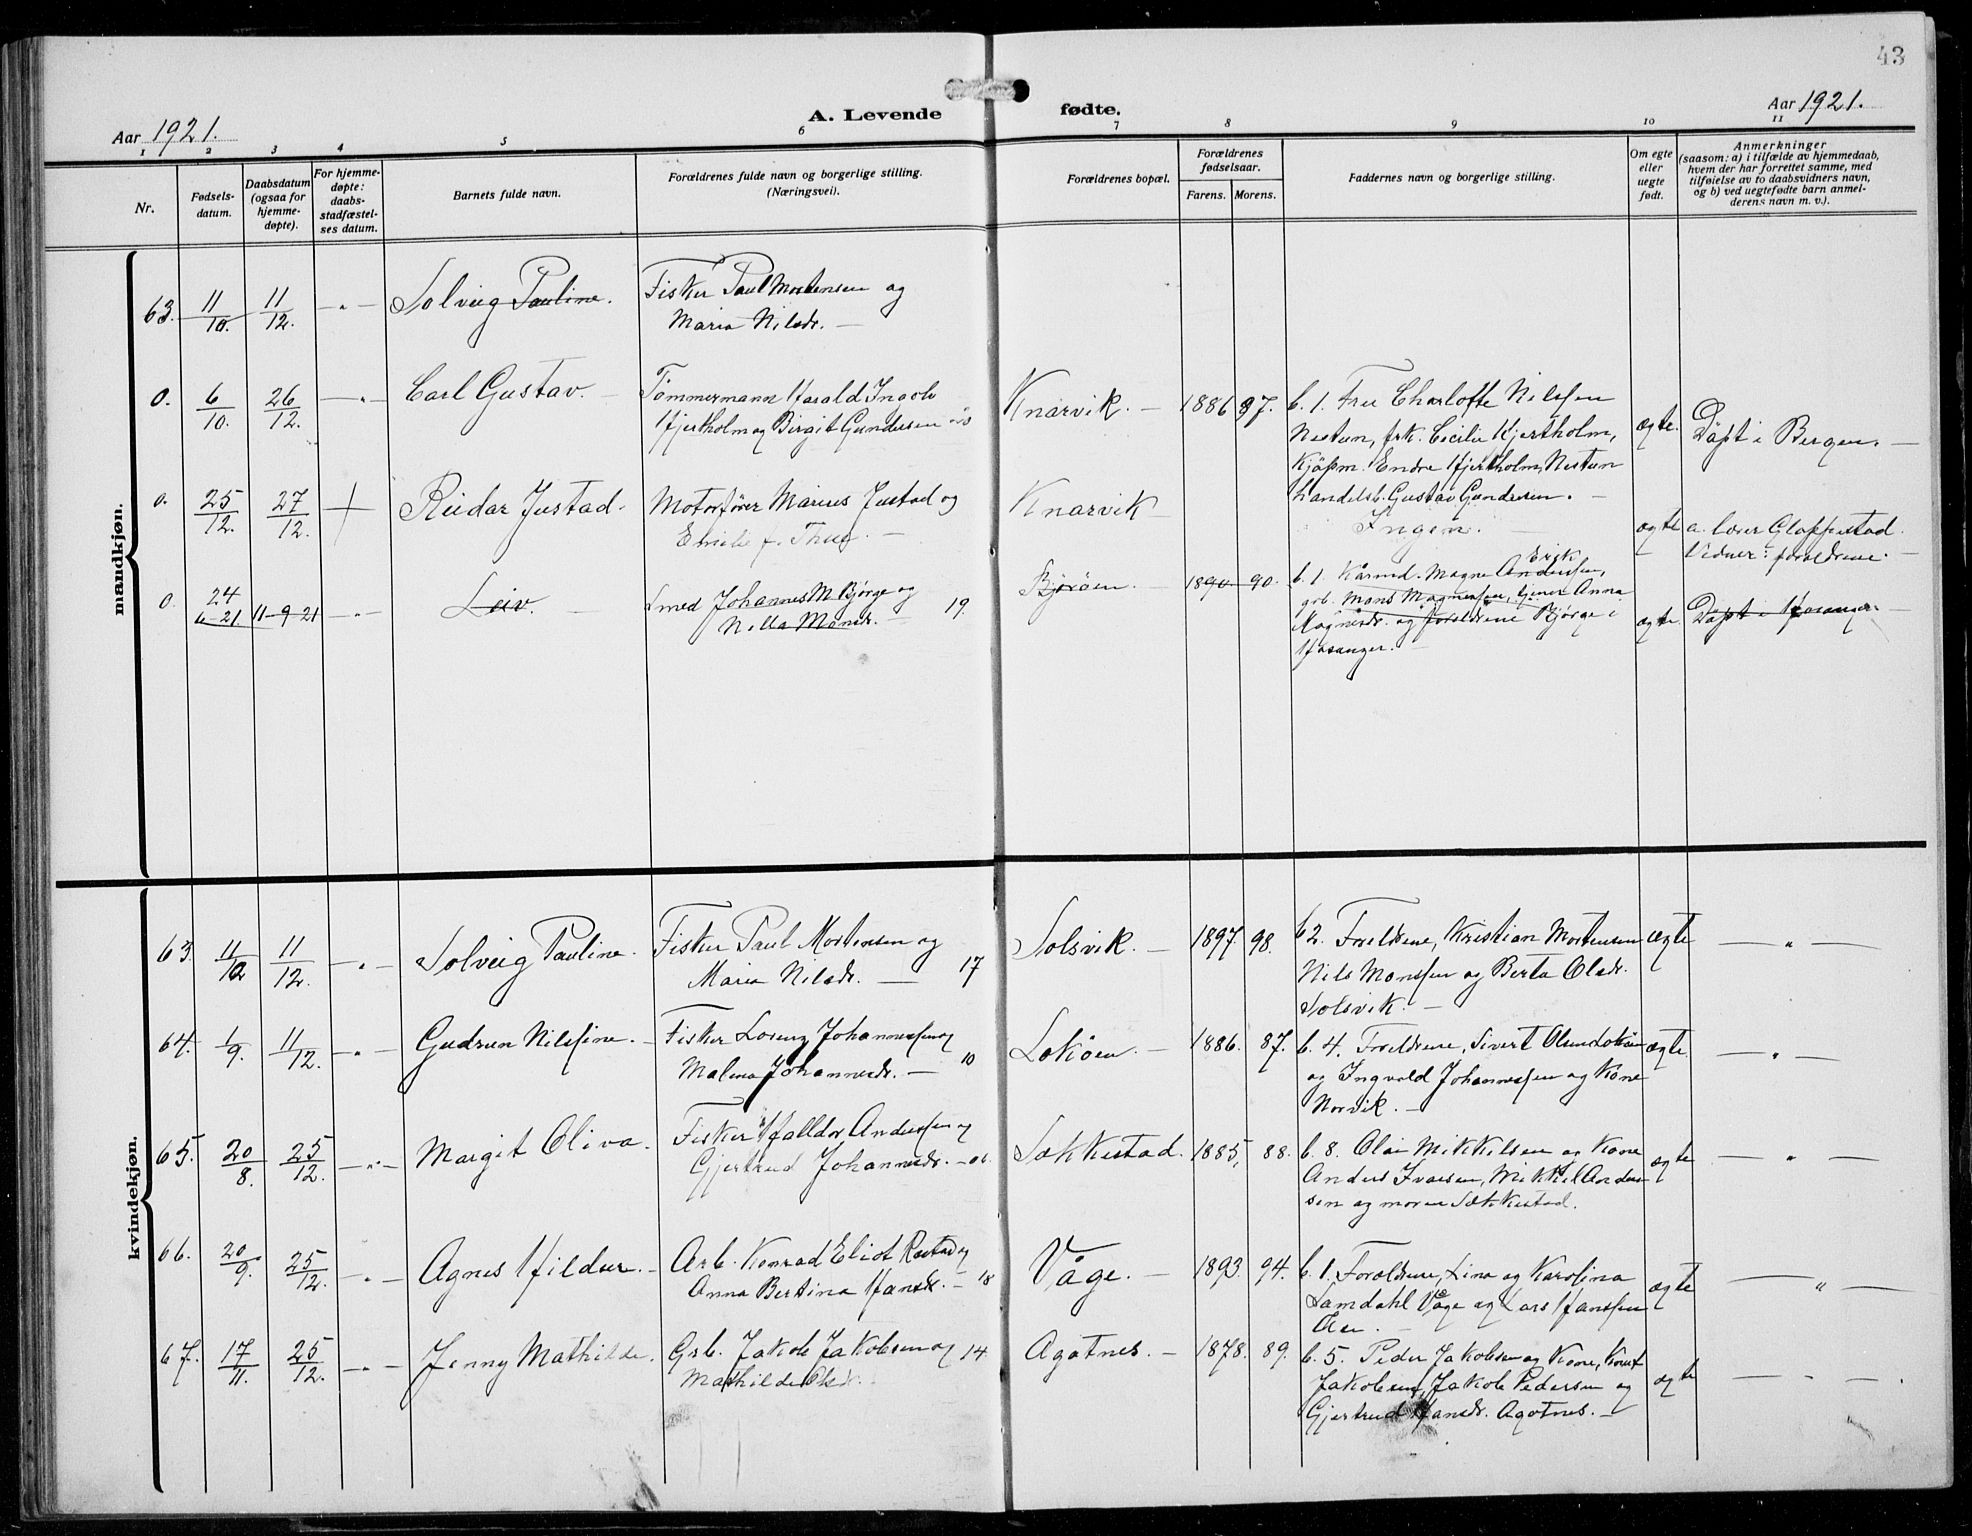 43
Aar 1921.
A. Levende fødte.
Aar 1921.
1 2 3 4 5 6 7 8 9 10 11
Nr.
Fødsels-
datum.
Daabsdatum
(ogsaa for
hjemme-
døpte).
For hjemme-
døpte:
daabs-
stadfæstel-
ses datum.
Barnets fulde navn.
Forældrenes fulde navn og borgerlige stilling.
(Næringsvei).
Forældrenes bopæl.
Forældrenes
fødselsaar.
Farens. Morens.
Faddernes navn og borgerlige stilling.
Om egte
eller
uegte
født.
Anmerkninger
(saasom: a) i tilfælde av hjemmedaab,
hvem der har forrettet samme, med
tilføielse av to daabsvidners navn,
og b) ved uegtefødte barn anmel-
derens navn m. v.).
mandkjøn.
63. 11/10. 11/12. — " — Solveig Pauline. Fisker Paul Mortensen og
Maria Nilsdr. —
0. 6/10. 26/12. — " — Carl Gustav. — Tømmermann Harald Ingolv
Hjertholm og Birgit Gundersen
Knarvik. — 1886 97. b. 1. Fru Charlotte Nilssen
Nestun, frk. Cecilie Hjertholm,
Kjøpm. Endre Hjertholm, Nestun
handelsb. Gustav Gundersen. —
ægte. Døpt i Bergen. —
0. 25/12. 27/12. + Reidar Justad. Motorfører Marius Justad og
Emilie f. —
Knarvik — Ingen. — ægte a. lærer Gloppestad.
Vidner: foreldrene. —
0. 24/6-21 11-9 21 — " — Leiv. — Smed Johannes M. Bjørge og
Nilla Monsdr. — 19.
Bjorøen. — 1890 90. b. 1. Magne Erik Anderssen,
grb. Mons Magnessen, Anna
Magnesdr. og foreldrene Bjørge i
Hosanger. —
ægte Døpt i Hosanger. —
kvindekjøn.
63. 11/10 11/12. — " — Solveig Pauline. Fisker Paul Mortensen og
Maria Nilsdr. — 17
Solsvik. — 1897. 98. b 2. Foreldrene, Kristian Mortensen
Nils Monssen og Berta Olsdr.
Solsvik. —
ægte — " —
64. 1/9. 11/12. — " — Gudrun Nilssine. — Fisker Lorenz Johannessen og
Malena Johannesdr. — 10
Lokøen. — 1886. 87. b. 4. Foreldrene, Sivert Olsen Lokøen
og Ingvald Johannessen og Kone
Norvik. —
ægte — " —
65. 20/8. 25/12. — " — Margit Oliva. Fisker Halldor Anderssen og
Gjertrud Johannesdr. — 06.
Sekkestad. 1885, 88. b. 8. Olai Mikkelsen og Kone
Anders Ivarsen, Mikkel Ander-
sen og moren Sekkestad.
ægte — " —
66. 20/9. 25/12. — " — Agnes Hildur. — Arb. Konrad Eliot og
Anna Bertina Hansdr. — 18
Våge. — 1893. 94. b. 1. Foreldrene, Lina og Karolina
Samdahl Våge og Lars Hanssen
ægte — " —
67. 17/11. 25/12. — " — Jenny Mathilde. Grb. Jakob Jakobsen og 14.
Mathilde Olsdr.
Agotnes. — 1878. 89. b. 5. Peder Jakobsen og Kone, Knut
Jakobsen, Jakob Pedersen og
Gjertrud Hansdr. Agotnes. —
ægte — " —